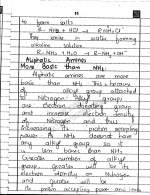 to form salts
R-NH2 + HCl → RNH3Cl
They dissolve in water forming
alkaline solution
R-NH2 + H2O → R-NH3 + OH-
Aliphatic Amines
More Basic than NH3
Aliphatic amines are more
basic than NH3 This is because
of alkyl group attached
to Nitrogen Alkyl groups
are electron donating group
and increase electron density
on Nitrogen and thus
increasing its proton accepting
power As NH3 doesn't have
any alkyl group so it
is less basic than NH3
Greater number of alkyl
group, greater will be
electron density on Nitrogen
and greater will be
its proton accepting power and more